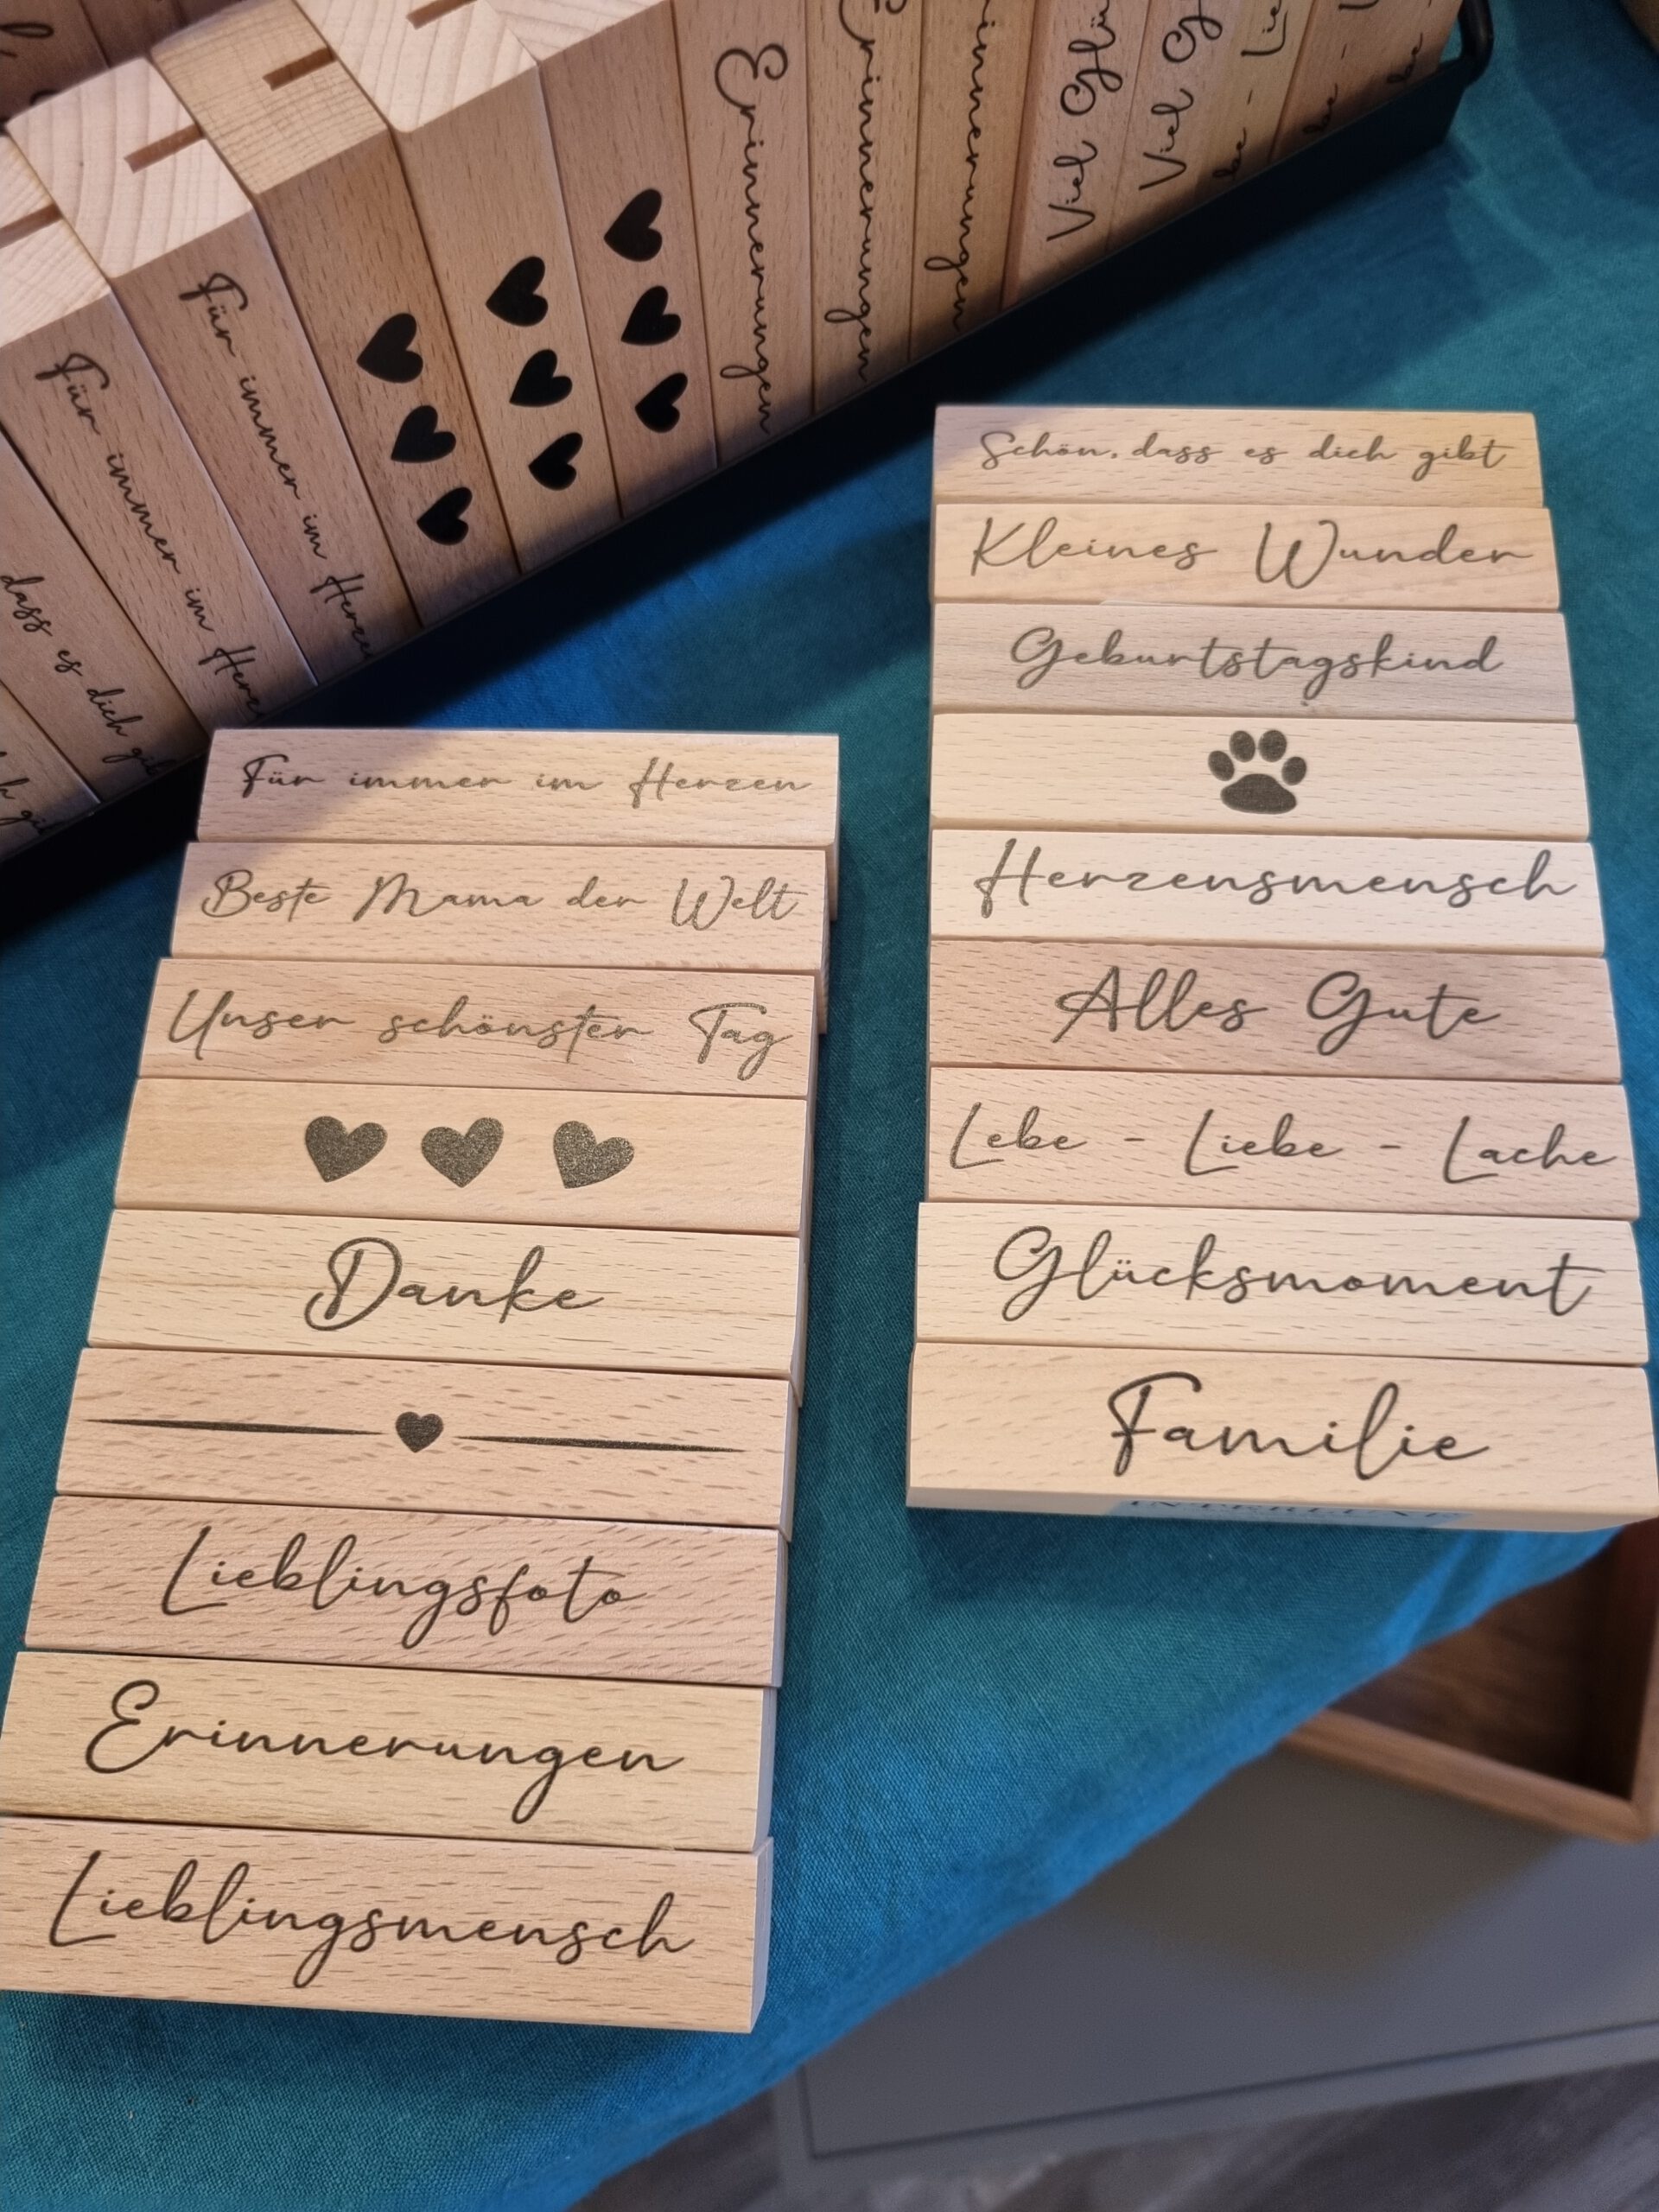 Für immer im Herzen
Beste Mama der Welt
Unser schönster Tag
Danke
Lieblingsfoto
Erinnerungen
Lieblingsmensch
Schön, dass es dich gibt
Kleines Wunder
Geburtstagskind
Herzensmensch
Alles Gute
Lebe - Liebe - Lache
Glücksmoment
Familie
dass es dich gib
Für immer im Herze
Für immer im Herze
Erinnerungen
Erinnerungen
innerungen
Viel Glü
Viel G
be - Lie